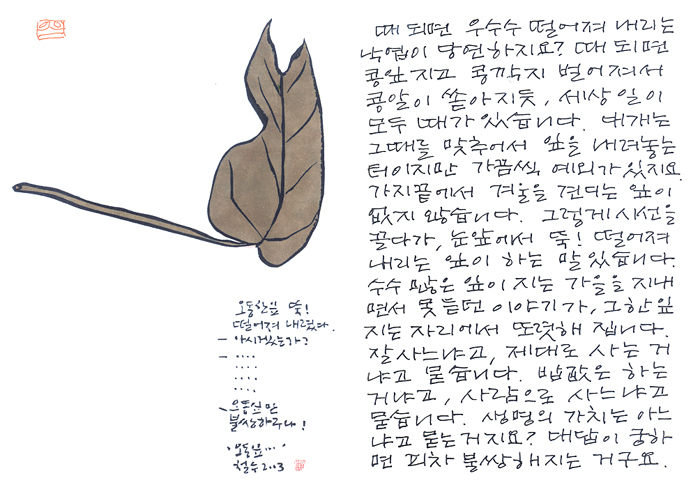 때 되면 우수수 떨어져 내리는
낙엽이 당연하지요? 때 되면
콩잎 지고 콩깍지 벌어져서
콩알이 쏟아지듯, 세상 일이
모두 때가 있습니다. 대개는
그때를 맞추어서 잎을 내려놓는
터이지만 가끔씩 예외가 있지요.
가지끝에서 겨울을 견디는 잎이
없지 않습니다. 그렇게 시선을
끌다가, 눈앞에서 뚝! 떨어져
내리는 잎이 하는 말 있습니다.
수수 많은 잎이 지는 가을을 지내
면서 못 듣던 이야기가, 그 한 잎
지는 자리에서 또렷해 집니다.
잘 사느냐고, 제대로 사는 거
냐고 묻습니다. 밥값은 하는
거냐고, 사람으로 사느냐고
묻습니다. 생명의 가치는 아느
냐고 묻는 거지요? 대답이 궁하
면 피차 불쌍해지는 거구요.
오동 한 잎 뚝!
떨어져 내렸다.
– 아시겠는가?
– ....
....
....
....
불쌍하구나!
철수 2003